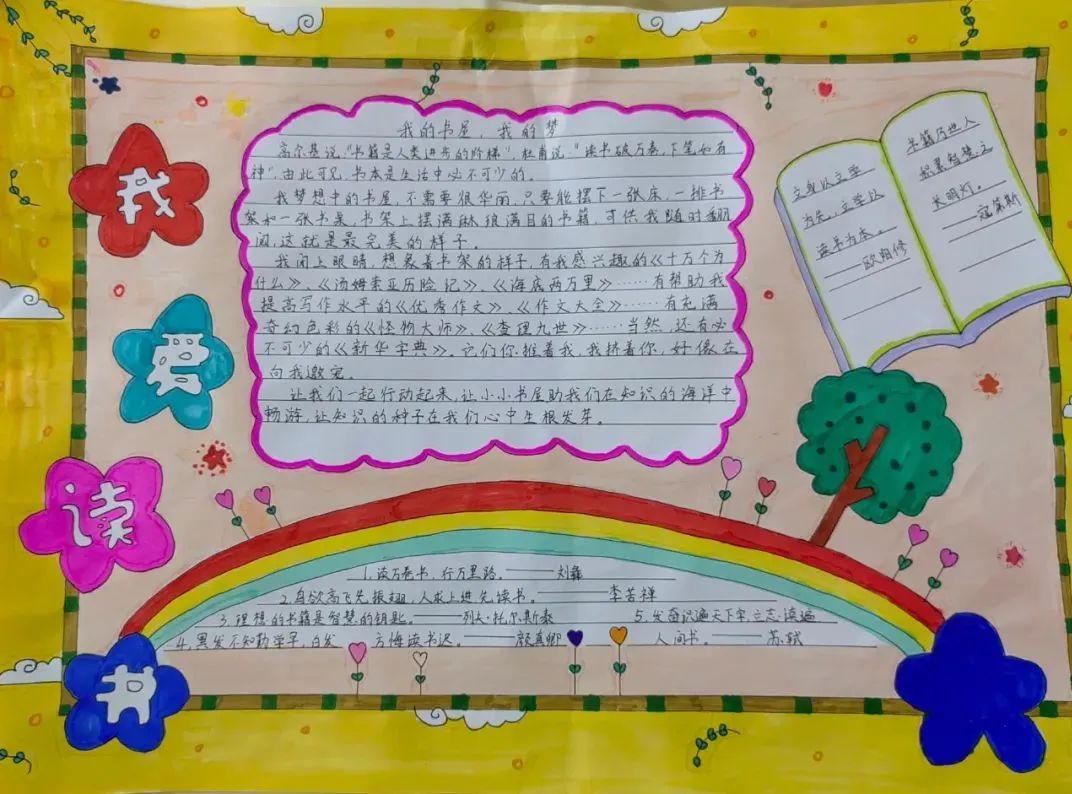 我
爱
读
书
我的书屋，我的梦
高尔基说，"书籍是人类进步的阶梯"，杜甫说，"读书破万卷，下笔如有
神"，由此可见，书本是生活中必不可少的。
我梦想中的书屋，不需要很华丽，只要能摆下一张床，一排书
架和一张书桌，书架上摆满琳琅满目的书籍，可供我随时翻
阅，这就是最完美的样子。
我闭上眼睛，想象着书架的样子，有我感兴趣的《十万个为
什么》、《汤姆索亚历险记》、《海底两万里》……有帮助我
提高写作水平的《优秀作文》、《作文大全》……有充满
奇幻色彩的《怪物大师》、《查理九世》……当然，还有必
不可少的《新华字典》。它们你推着我，我挤着你，好像在
向我邀宠。
让我们一起行动起来，让小小书屋助我们在知识的海洋中
畅游，让知识的种子在我们心中生根发芽。
立身以立学
为先，立学以
读书为本。
——欧阳修
书籍乃世人
积累智慧之
长明灯。
——寇第斯
1.读万卷书，行万里路。——刘彝
2.鸟欲高飞先振翅，人求上进先读书。——李苦禅
3.理想的书籍是智慧的钥匙。——列夫·托尔斯泰
4.黑发不知勤学早，白发 方悔读书迟。——颜真卿
5.发奋识遍天下字，立志读遍
人间书。——苏轼